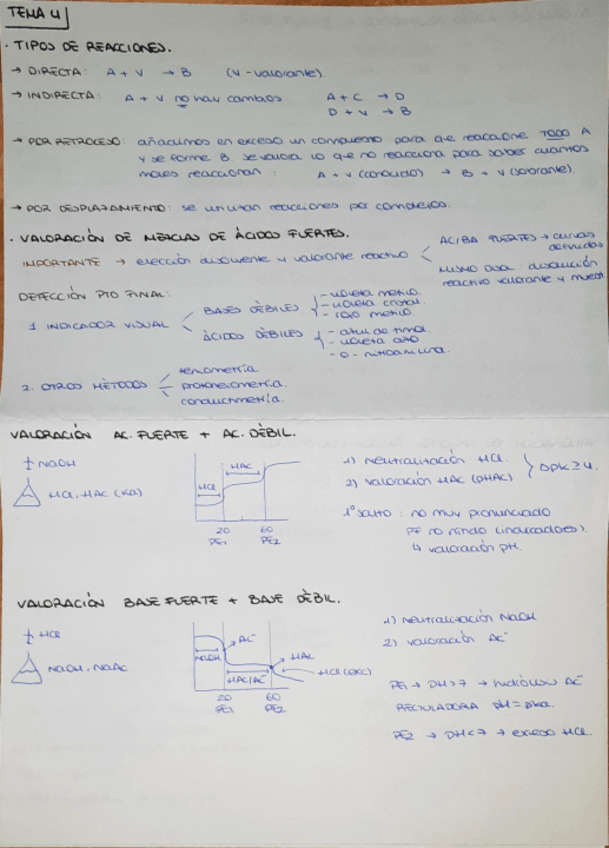 TEMA 4
· TIPOS DE REACCIONES.
→ DIRECTA: A + V → B (V - valorante)
→ INDIRECTA: A + V no hay cambios A + C → D
D + V → B
→ POR RETROCESO: añadimos en exceso un compuesto para que reaccione TODO A
y se forme B. se valora lo que no reacciona para saber cuantos
moles reaccionan: A + V (conocido) → B + V (sobrante).
→ POR DESPLAZAMIENTO: se utilizan reacciones por complejos.
· VALORACIÓN DE MEZCLAS DE ÁCIDOS FUERTES.
IMPORTANTE → elección disolvente y valorante reactivo
AC/BA FUERTES → curvas
definidas
MISMO disolución
reactivo valorante y muest
DETECCIÓN PTO FINAL:
1. INDICADOR VISUAL
BASES DÉBILES
- violeta metilo.
- violeta cristal.
- rojo metilo.
ÁCIDOS DÉBILES
- azul de timol.
- violeta azo
- o - nitroanilina.
2. OTROS MÉTODOS
conductimetría.
VALORACIÓN AC. FUERTE + AC. DÉBIL.
NaOH
HCl, HAC (Ka)
HCl
HAC
20
PE1
60
PE2
1) neutralización HCl.
2) valoración HAC (pHAC)
ΔpK ≥ 4.
1º salto: no muy pronunciado
PF no nítido (indicadores).
↳ valoración pH.
VALORACIÓN BASE FUERTE + BASE DÉBIL.
HCl
NaOH, NaAc
NaOH
AC⁻
HAC/AC⁻
HAC
HCl (exc)
20
PE1
60
PE2
1) neutralización NaOH
2) valoración AC⁻
PE1 → pH>7 → hidrólisis AC⁻
REGULADORA pH = pKa.
PE2 → pH<7 → exceso HCl.